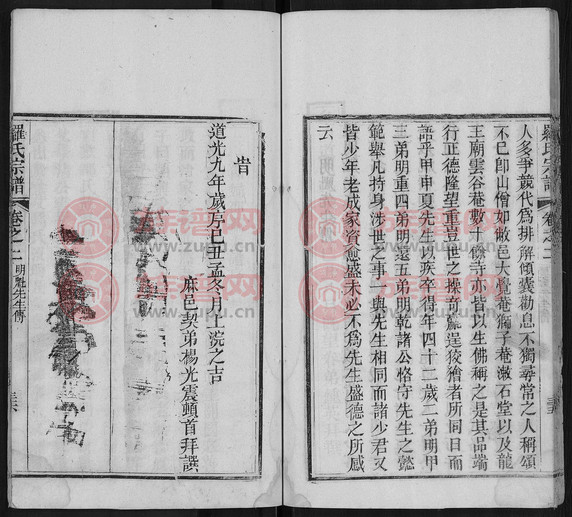 人多爭競代為排解傾囊勸息不獨尋常之人稱頌
不已卽山僧如敝邑大覺菴獅子菴漱石堂以及龍
王廟雲谷菴數十餘寺亦皆以生佛稱之是其品端
行正德隆望重豈世之操奇贏逞狡獪者所同日而
語乎甲申夏先生以疾卒得年四十二歲二弟明甲
三弟明重四弟明還五弟明乾諸公恪守先生之懿
範舉凡持身涉世之事一與先生相同而諸少君又
皆少年老成家資愈盛未必不為先生盛德之所感
云
羅氏宗譜
卷之二
旹
道光九年歲序已丑孟冬月上浣之吉
麻邑契弟楊光震頓首拜譔
羅氏宗譜
卷之二
明魁先生傳
族谱网
www.zupu.cn
族谱网
www.zupu.cn